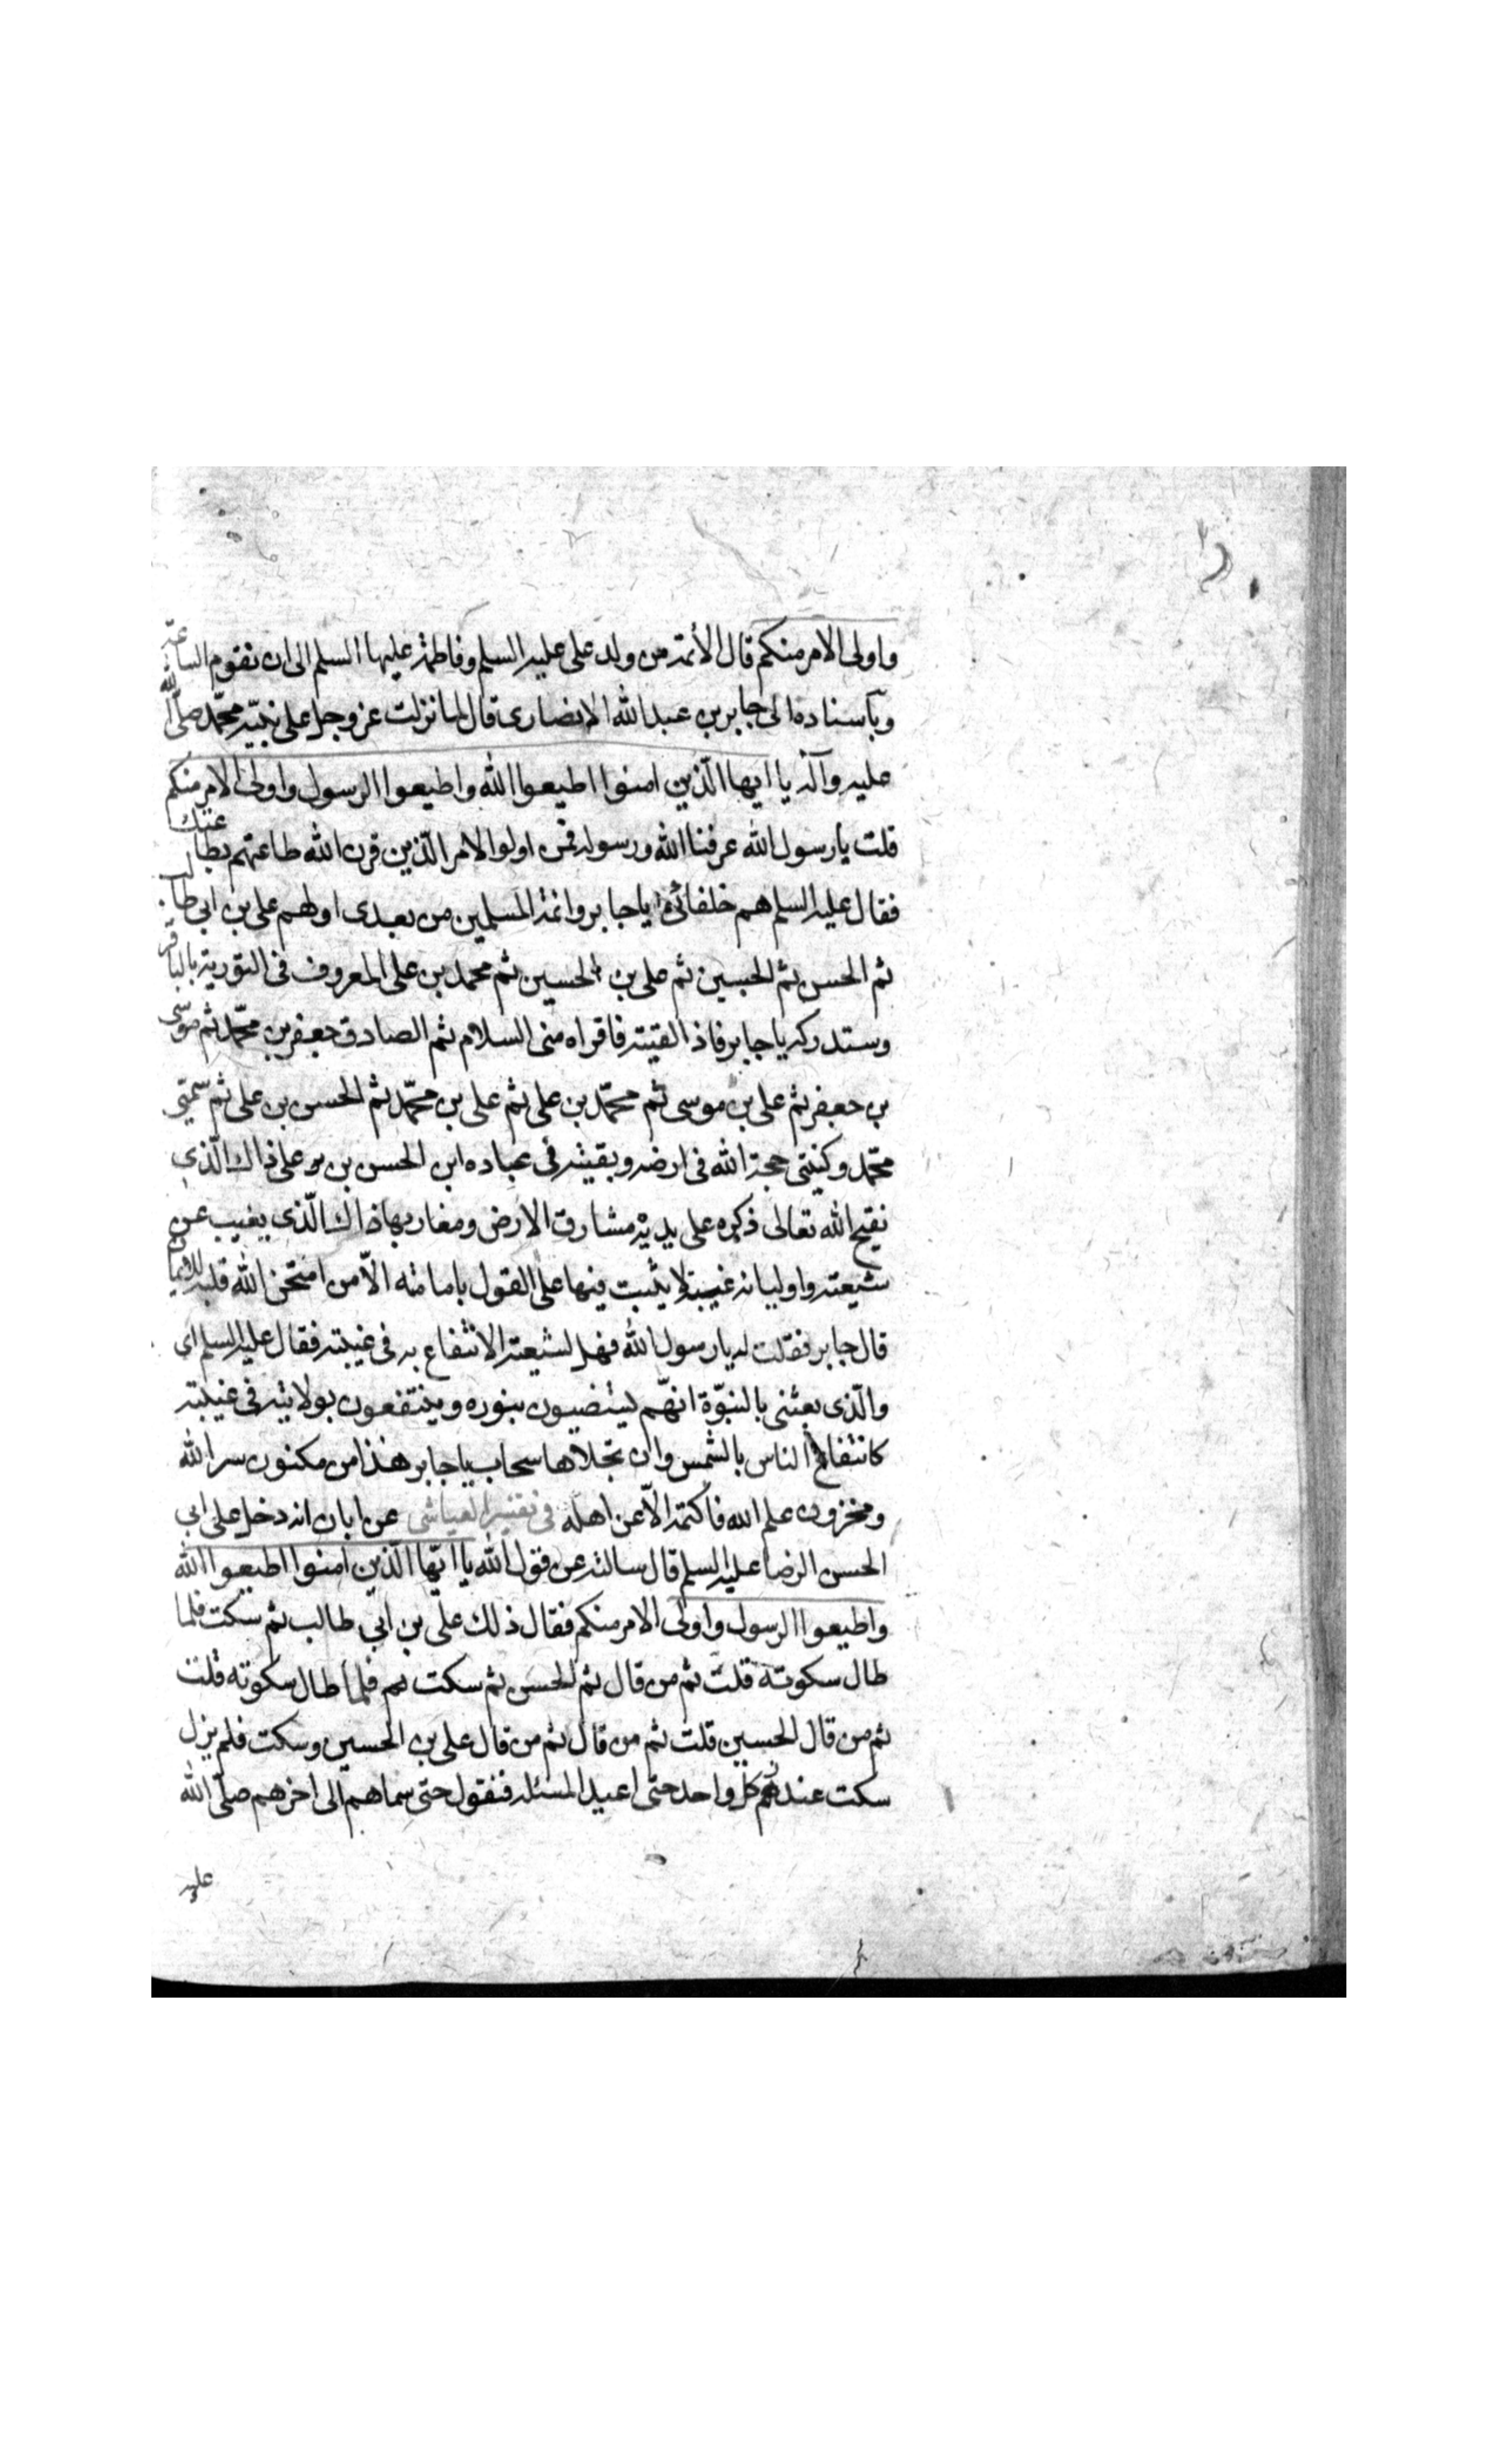 واولى الامر منكم قال الأئمة من ولد على عليه السلم وفاطمة عليها السلم الى ان تقوم الساعة
وبآسناده الى جابر بن عبد الله الانصارى قال لما نزلت عز وجل على نبيّه محمّد صلّى الله
عليه وآله يا ايها الّذين امنوا اطيعوا الله واطيعوا الرسول واولى الامر منكم
قلت يا رسول الله عرفنا الله ورسوله فمن اولوا الامر الّذين قرن الله طاعتهم بطاعتك
فقال عليه السلم هم خلفائى يا جابر وائمة المسلمين من بعدى اولهم على بن ابى طالب
ثم الحسن ثم الحسين ثم على بن الحسين ثم محمد بن على المعروف فى التورية بالباقر
وستدركه يا جابر فاذا لقيته فاقراه منى السلام ثم الصادق جعفر بن محمّد ثم موسى
بن جعفر ثم على بن موسى ثم محمّد بن على ثم على بن محمّد ثم الحسن بن على ثم سميّى
محمّد وكنيتى حجة الله فى ارضه وبقيته فى عباده ابن الحسن بن على ذاك الّذى
نفتح الله تعالى ذكره على يديه مشارق الارض ومغاربها ذاك الّذى يغيب عن
شيعته واوليائه غيبة لا يثبت فيها على القول بامامته الّا من امتحن الله قلبه للايمان
قال جابر فقلت له يا رسول الله فهل لشيعته الانتفاع به فى غيبته فقال عليه السلم اى
والّذى بعثنى بالنبوّة انهّم ليتضيون بنوره وينتفعون بولايته فى غيبته
كانتفاع الناس بالشمس وان تجلاها سحاب يا جابر هذا من مكنون سر الله
ومخزون علم الله فاكتمه الّا عن اهله فى تفسير العياشى عن ابان انه دخل على ابى
الحسن الرضا عليه السلم قال سالته عن قول الله يا ايّها الّذين امنوا اطيعوا الله
واطيعوا الرسول واولى الامر منكم فقال ذلك على بن ابى طالب ثم سكت فلما
طال سكوته قلت ثم من قال ثم الحسن ثم سكت فلما طال سكوته قلت
ثم من قال الحسين قلت ثم من قال ثم من قال على بن الحسين وسكت فلم يزل
سكت عند كل واحد حتى اعيد المسئله فنقول حتى سماهم الى اخرهم صلّى الله
عليه